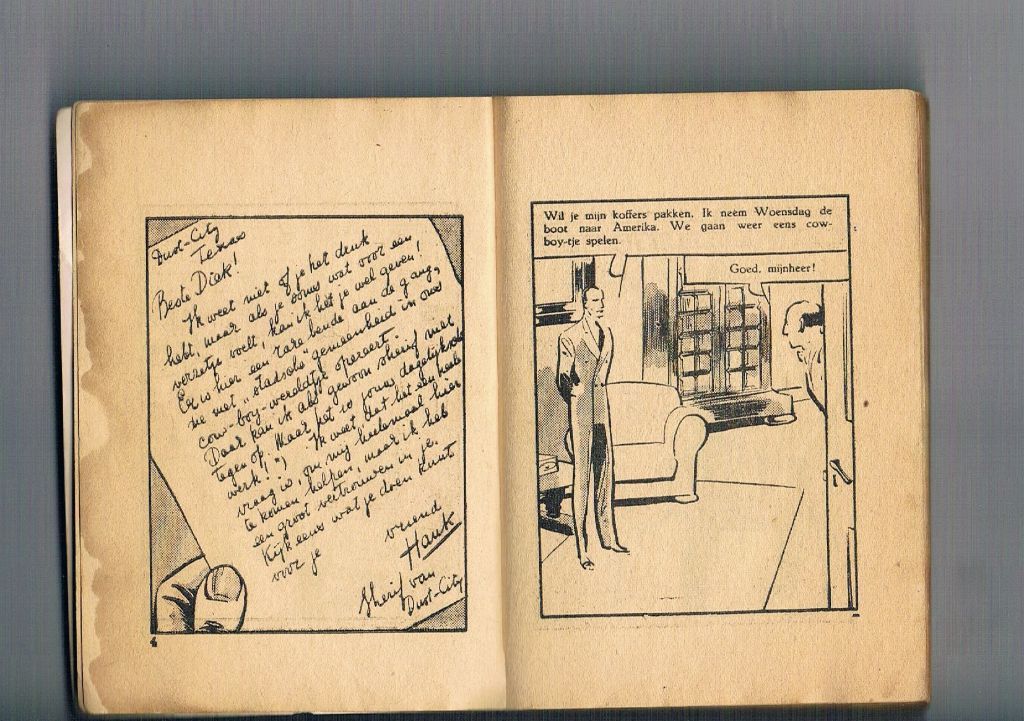 Dust-City
Texas
Beste Dick!
Ik weet niet of je het druk
hebt, maar als je soms wat voor een
verzetje voelt, kan ik het je wel geven!
Er is hier een rare bende aan de gang,
die met „stadsche" gemeenheid in ons
cow-boy-wereldtje opereert.
Daar kan ik als gewoon sherif niet
tegen op! Maar het is jouw dagelijksche
werk! Ik weet, dat het een heele
vraag is, om mij heelemaal hier
te komen helpen, maar ik heb
een groot vertrouwen in je.
Kijk eens wat je doen kunt
voor je
vriend
Hank
Sherif van
Dust-City
4
Wil je mijn koffers pakken. Ik neem Woensdag de
boot naar Amerika. We gaan weer eens cow-
boy-tje spelen.
Goed, mijnheer!